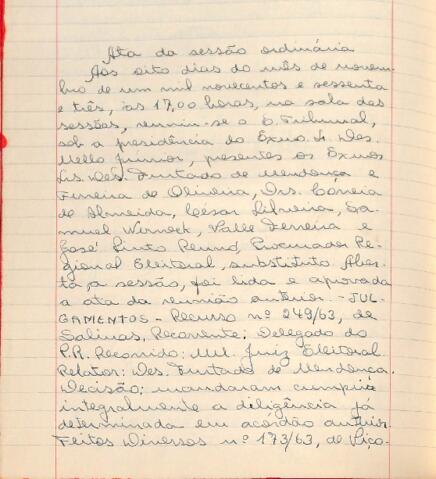 Ata da sessão ordinária
Aos oito dias do mês de novem-
bro de um mil novecentos e sessenta
e três, às 17,00 horas, na sala das
sessões, reuniu-se o E. Tribunal,
sob a presidência do Exmo. Sr. Des.
Mello Junior, presentes os Exmos
Srs. Des. Furtado de Mendonça e
Ferreira de Oliveira, Drs. Corrêia
de Almeida, César Silveira, Sa-
muel Werneck, Valle Ferreira e
José Pinto Renó, Procurador Re-
gional Eleitoral, substituto. Aber-
ta a sessão, foi lida e aprovada
a ata da reunião anterior. - JUL-
GAMENTOS - Recurso nº 249/63, de
Salinas, Recorrente: Delegado do
P.R. Recorrido: MM. Juiz Eleitoral.
Relator: Des. Furtado de Mendonça.
Decisão: mandaram cumprir
integralmente a diligência já
determinada em acordão anterior.
Feitos Diversos nº 173/63, de Piço-